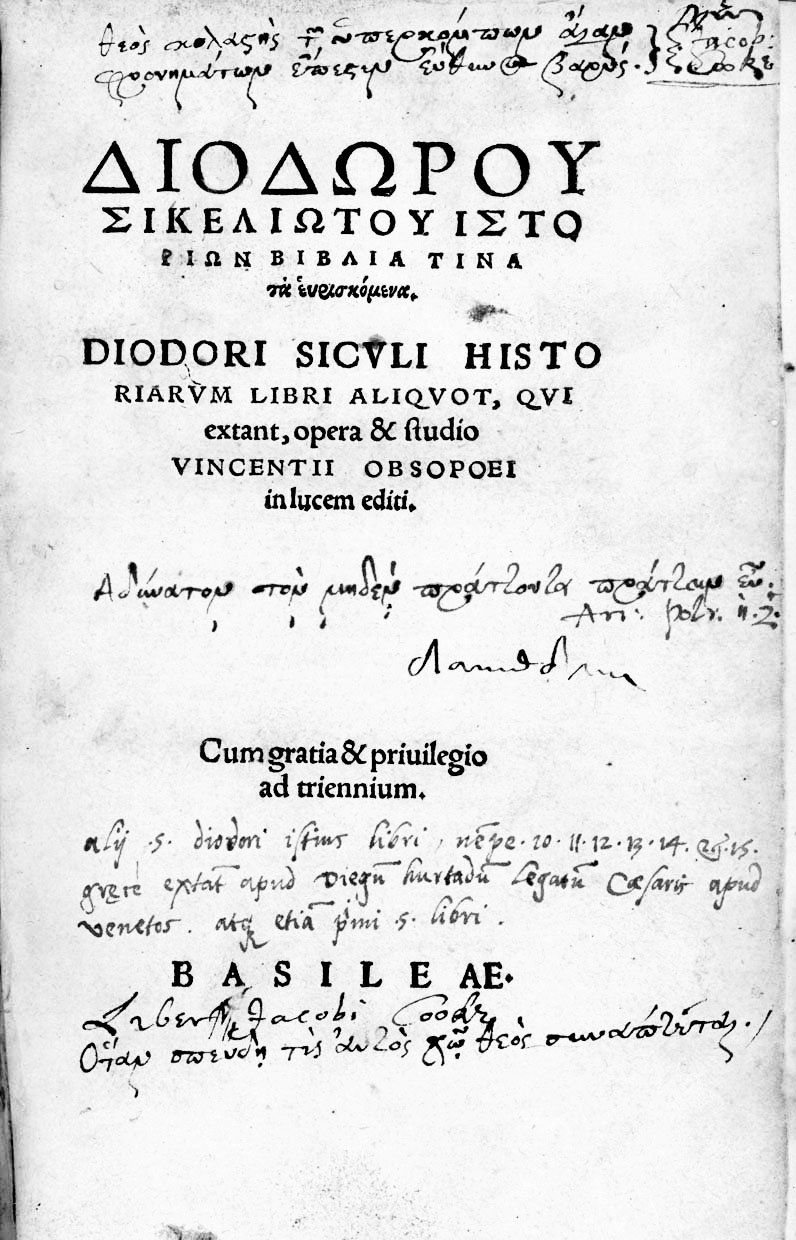 θεὸς κολαστὴς τῶν ὑπερκόμπων ἄγαν
φρονημάτων ἔπεστιν εὔθυνος βαρύς.
Jacob:
Cooke
ΔΙΟΔΩΡΟΥ
ΣΙΚΕΛΙΩΤΟΥ ΙΣΤΟ
ΡΙΩΝ ΒΙΒΛΙΑ ΤΙΝΑ
τὰ ἑυρισκόμενα.
DIODORI SICVLI HISTO
RIARVM LIBRI ALIQVOT, QVI
extant, opera & studio
VINCENTII OBSOPOEI
in lucem editi.
Αδύνατον τὸν μηδὲν πράττοντα πράττειν εὖ.
Ari: Polit.
Cum gratia & priuilegio
ad triennium.
alij .5. diodori istius libri, nẽpe .10.11.12.13.14. & .15.
gręcè extãt apud Diegũ hurtadũ legatũ Cæsaris apud
venetos. atq etiã p̃mi 5. libri.
BASILEAE.
Liber Jacobi Cooke
Ὅταν σπεύδῃ τὶς ἀυτὸς χὠ θεὸς συνάπτεται.